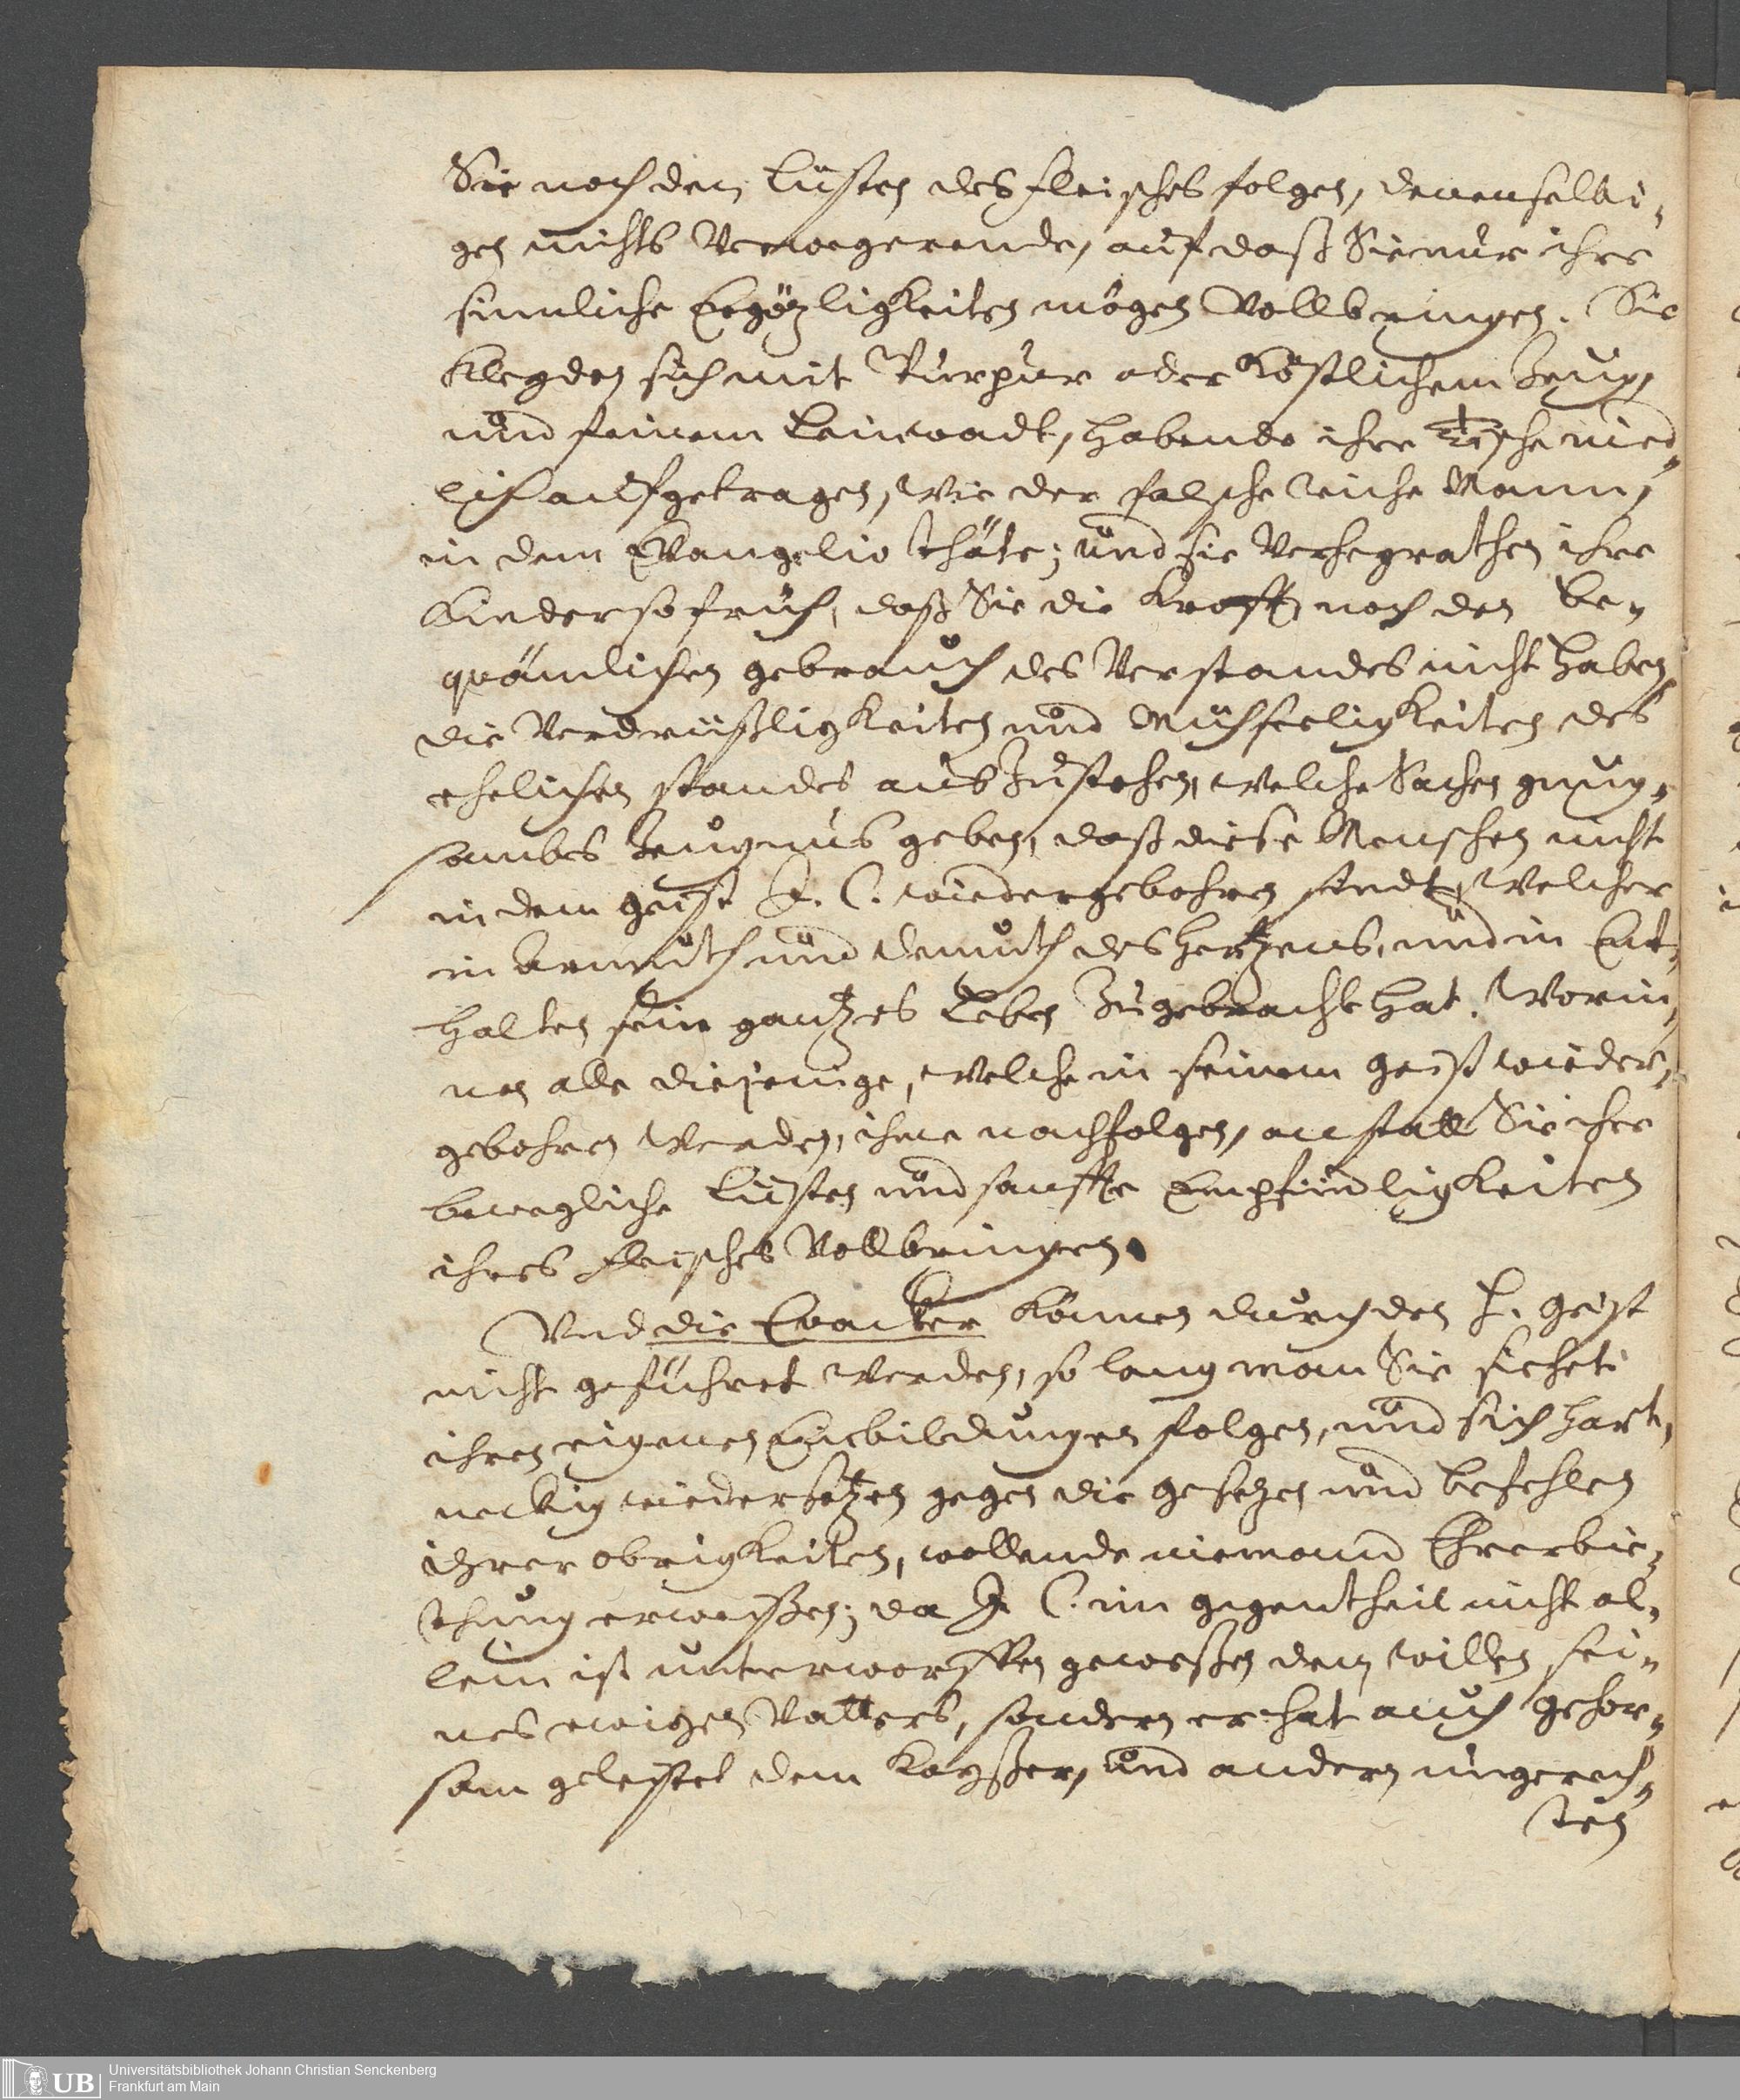 Sie nach den Lüsten des fleisches folgen, denenselbi-
gen nichts Verwegerende, auf daß Sie nur ihre
sinnliche Ergözligkeiten mögen Vollbringen. Sie
kleyden sich mit Purpur oder köstlichem Zeug,
und feinem Leinwadt, habende ihre Tische nied-
lich aufgetragen, wie der falsche reiche Mann,
in dem Evangelio thäte; und sie Verheyrathen ihre
Kinder so früh, daß Sie die Krafft noch den be-
quämlichen gebrauch des Verstandes nicht haben,
die Verdrüßligkeiten und Mühseeligkeiten des
ehelichen standes auszustehen, welche Sachen gnug-
sambes Zeugnus geben, daß diese Menschen nicht
in dem geist J. C. wiedergebohren sindt, Welcher
in armuth und demuth des Hertzens, und in Ent-
halten sein gantzes Leben zugebracht hat. Worin-
nen alle diejenige, welche in seinem geist wieder-
gebohren Werden, ihme nachfolgen, anstatt Sie ihre
bewegliche Lüsten und sanffte Empfindligkeiten
ihres fleisches Vollbringen.
Und die Quacker können durch den H. geist
nicht geführet Werden, so lang man Sie siehet
ihren eigenen Einbildungen folgen, und sich hart-
neckig wiedersetzen gegen die gesetzen und befehlen
ihrer obrigkeiten, wollende niemand Ehrerbie-
thung erweißen; da J. C. im gegentheil nicht al-
lein ist unterworffen geweßen dem willen sei-
nes ewigen Vatters, sondern er hat auch gehor-
sam geleistet dem Kayßer, und andern ungerech-
ten
UB Universitätsbibliothek Johann Christian Senckenberg
Frankfurt am Main